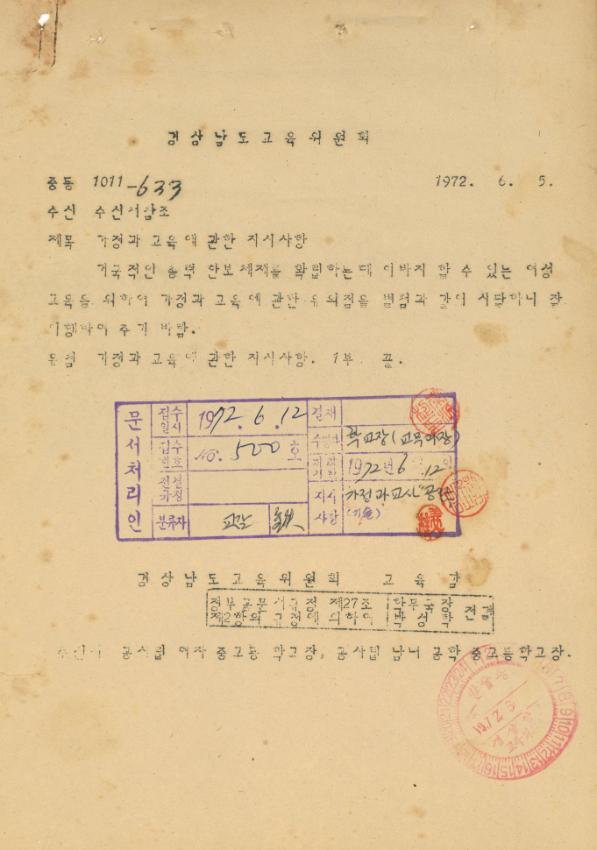 경상남도교육위원회
중등 1011-633 1972. 6. 5.
수신 수신처참조
제목 가정과 교육에 관한 지시사항
거국적인 총력 안보체제를 확립하는데 이바지 할 수 있는 여성
교육을 위하여 가정과 교육에 관한 유의점을 별첨과 같이 시달하니 잘
이행하여 주기 바람.
유첨 가정과 교육에 관한 지시사항. 1부. 끝.
문서처리인
접수일시 1972. 6. 12
접수번호 No. 500 호
분류자 교감
결재
학교장(교육과장)
1972년 6. 12
지시사항 가정과교사 공람
경상남도교육위원회 교육감
정부공문서규정 제27조
제2항의 규정에 의하여
학무국장
전결
수신처 공사립 여자 중고등 학교장, 공사립 남녀 공학 중고등학교장.